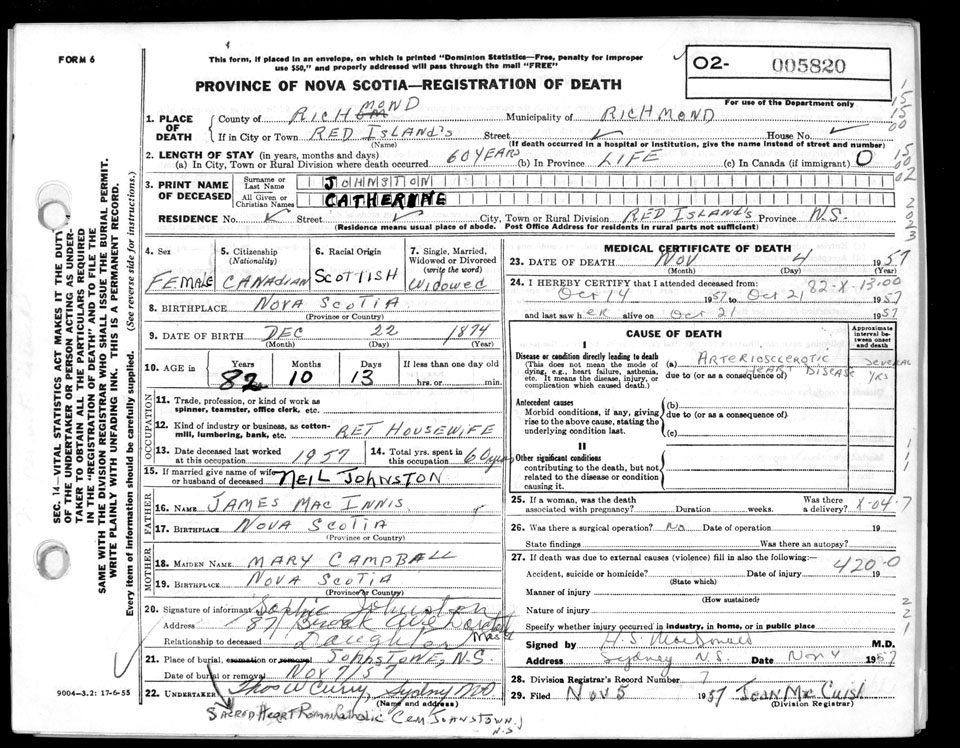 FORM 6
This form, if placed in an envelope, on which is printed "Dominion Statistics—Free, penalty for improper
use $50," and properly addressed will pass through the mail "FREE"
PROVINCE OF NOVA SCOTIA—REGISTRATION OF DEATH
O2- 005820
For use of the Department only
1. PLACE OF DEATH
County of RICHMOND Municipality of RICHMOND
If in City or Town RED ISLAND'S Street House No.
(Name) (If death occurred in a hospital or institution, give the name instead of street and number)
2. LENGTH OF STAY (in years, months and days)
(a) In City, Town or Rural Division where death occurred 60 YEARS (b) In Province LIFE (c) In Canada (if immigrant) O
3. PRINT NAME OF DECEASED
Surname or Last Name JOHNSTON
All Given or Christian Names CATHERINE
RESIDENCE No. Street City, Town or Rural Division RED ISLAND'S Province N.S.
(Residence means usual place of abode. Post Office Address for residents in rural parts not sufficient)
4. Sex FEMALE
5. Citizenship (Nationality) CANADIAN
6. Racial Origin SCOTTISH
7. Single, Married, Widowed or Divorced (write the word) WIDOWED
8. BIRTHPLACE NOVA SCOTIA
(Province or Country)
9. DATE OF BIRTH DEC 22 1874
(Month) (Day) (Year)
10. AGE in Years 82 Months 10 Days 13 If less than one day old hrs. or min.
OCCUPATION
11. Trade, profession, or kind of work as
spinner, teamster, office clerk, etc.
12. Kind of industry or business, as cotton-
mill, lumbering, bank, etc. RET HOUSEWIFE
13. Date deceased last worked
at this occupation 1957
14. Total yrs. spent in
this occupation 60 years
15. If married give name of wife
or husband of deceased NEIL JOHNSTON
FATHER
16. NAME JAMES MAC INNIS
17. BIRTHPLACE NOVA SCOTIA
(Province or Country)
MOTHER
18. MAIDEN NAME MARY CAMPBALL
19. BIRTHPLACE NOVA SCOTIA
(Province or Country)
20. Signature of informant Sophie Johnston
Address 87 Brook Ave Mass
Relationship to deceased Daughter
21. Place of burial, cremation or removal JOHNSTOWN, N.S.
Date of burial or removal NOV 7/57
22. UNDERTAKER Thos W Curry, Sydney
(Name and address)
SACRED HEART ROMAN CATHOLIC CEM JOHNSTOWN,
N.S
9004—3.2: 17-6-55
MEDICAL CERTIFICATE OF DEATH
23. DATE OF DEATH NOV 4 1957
(Month) (Day) (Year)
24. I HEREBY CERTIFY that I attended deceased from: 82-X-13.00
Oct 14 1957 to Oct 21 1957
and last saw her alive on Oct 21 1957
CAUSE OF DEATH
Approximate interval between onset and death
I
Disease or condition directly leading to death
(This does not mean the mode of
dying, e.g., heart failure, asthenia,
etc. It means the disease, injury, or
complication which caused death.)
(a) ARTERIOSCLEROTIC HEART DISEASE SEVERAL YRS
due to (or as a consequence of)
Antecedent causes
Morbid conditions, if any, giving
rise to the above cause, stating the
underlying condition last.
(b)
due to (or as a consequence of)
(c)
II
Other significant conditions
contributing to the death, but not
related to the disease or condition
causing it.
25. If a woman, was the death
associated with pregnancy? Duration weeks. Was there a delivery? X-04-7
26. Was there a surgical operation? No Date of operation 19
State findings Was there an autopsy?
27. If death was due to external causes (violence) fill in also the following:— 420.0
Accident, suicide or homicide? Date of injury 19
(State which)
Manner of injury
(How sustained)
Nature of injury
Specify whether injury occurred in industry, in home, or in public place
Signed by H.S. MacDonald M.D.
Address Sydney N.S. Date Nov 4 1957
28. Division Registrar's Record Number 7
29. Filed Nov 5 1957 Jean Mac Cuish
(Division Registrar)
SEC. 14—VITAL STATISTICS ACT MAKES IT THE DUTY
OF THE UNDERTAKER OR PERSON ACTING AS UNDER-
TAKER TO OBTAIN ALL THE PARTICULARS REQUIRED
IN THE "REGISTRATION OF DEATH" AND TO FILE THE
SAME WITH THE DIVISION REGISTRAR WHO SHALL ISSUE THE BURIAL PERMIT.
WRITE PLAINLY WITH UNFADING INK. THIS IS A PERMANENT RECORD.
Every item of information should be carefully supplied. (See reverse side for instructions.)